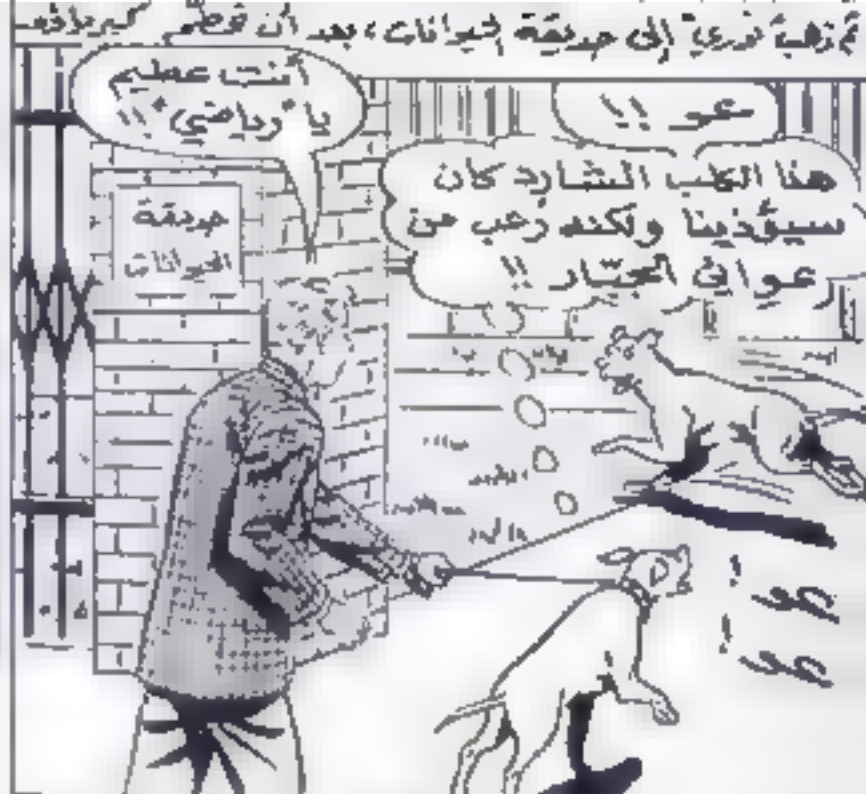 ثم ذهب "نوري" إلى حديقة الحيوانات، بعد أن
أنت عظيم
يا "رياضي" !!
عو !!
هذا الكلب الشارد كان
سيؤذينا ولكنه رعب من
عوائي الجبّار !!
حديقة
الحيوانات